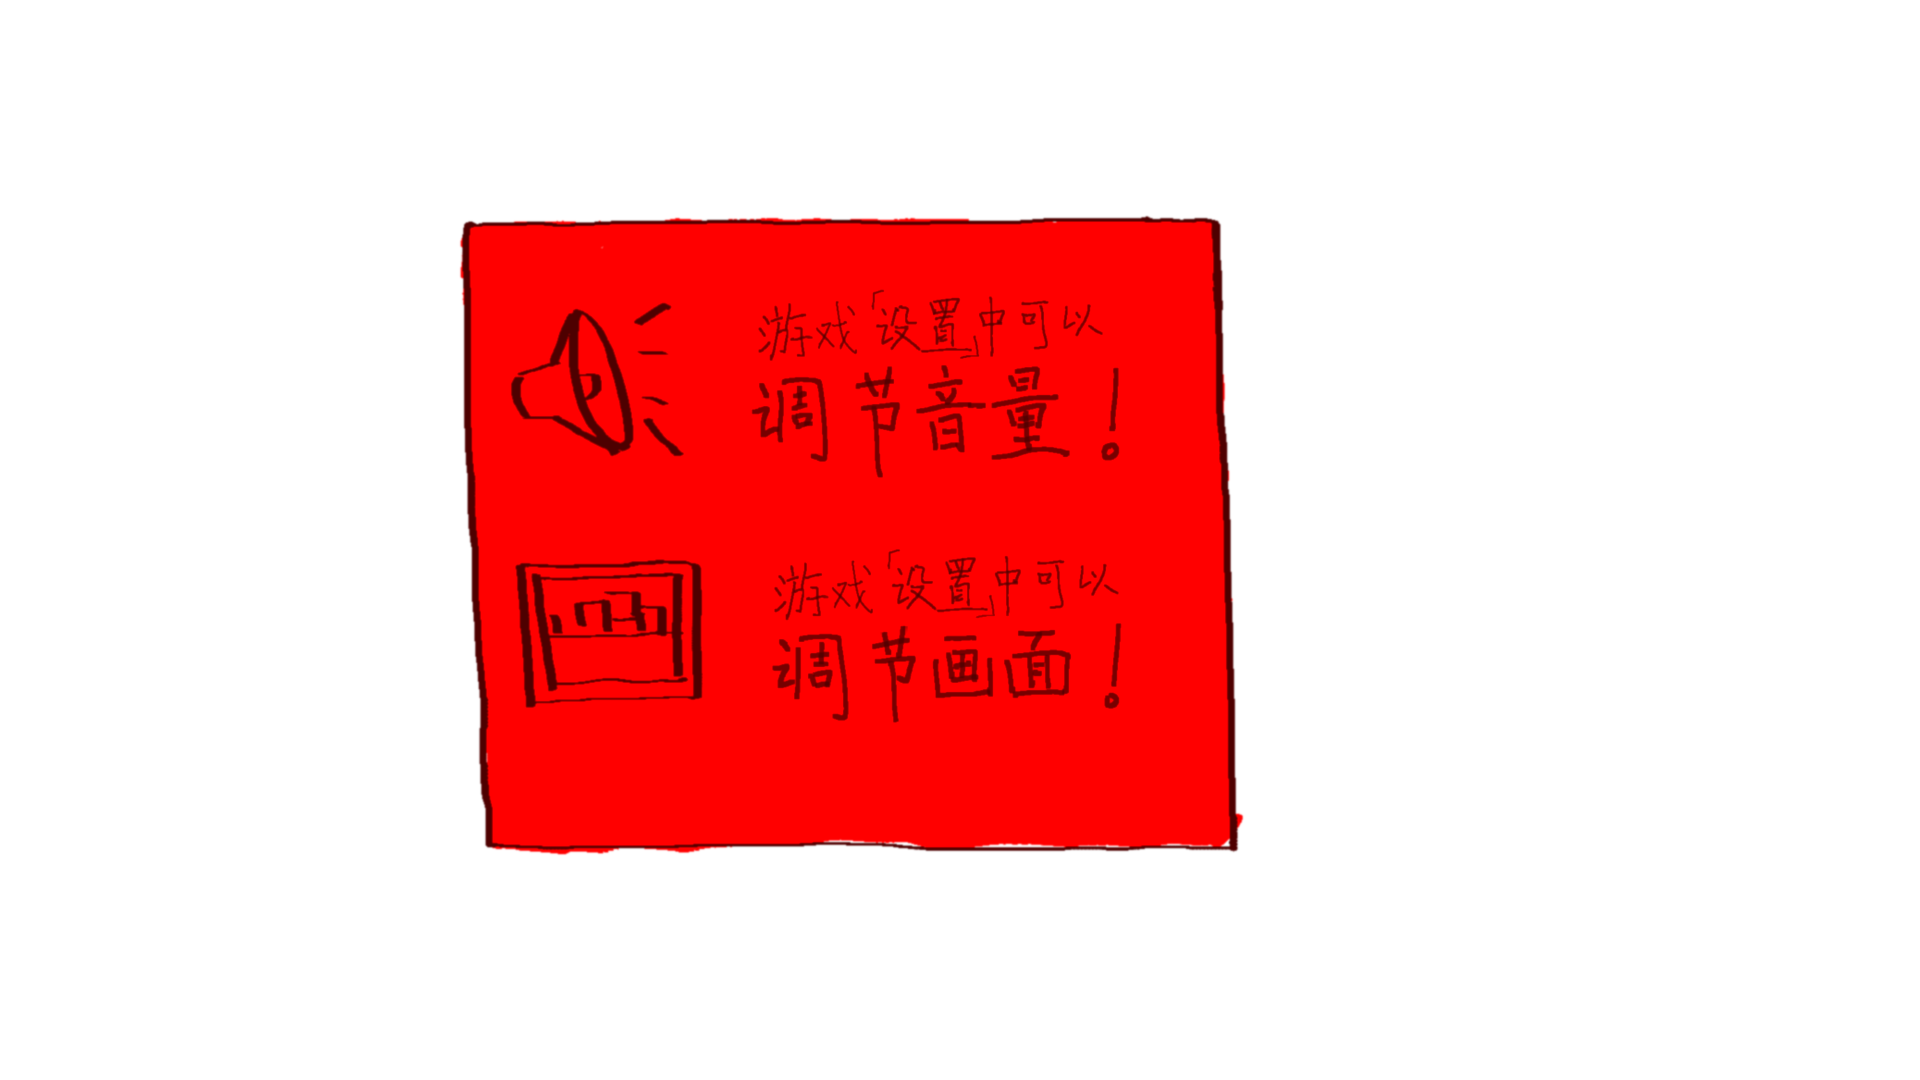 游戏「设置」中可以
调节音量！
游戏「设置」中可以
调节画面！